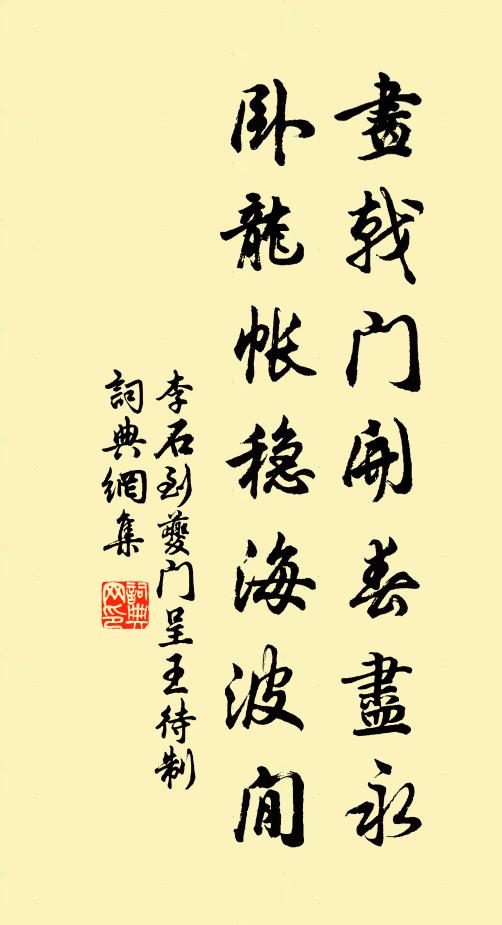 畫戟门開春盡永
卧龍帐稳海波閒
李石到夔门呈王待制
詞典網集
詞典网印